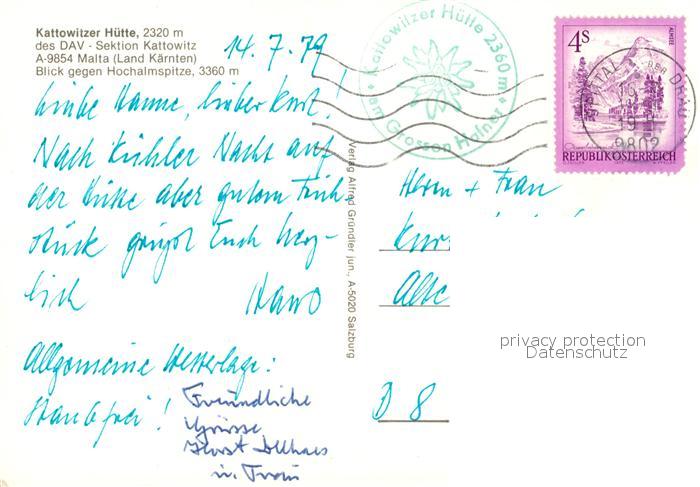 Kattowitzer Hütte, 2320 m
des DAV - Sektion Kattowitz
A-9854 Malta (Land Kärnten)
Blick gegen Hochalmspitze, 3360 m
14.7.79
Liebe Hanne, lieber Kurt!
Nach kühler Nacht auf
der Hütte aber gutem Früh-
stück grüßt Euch herz-
lich Hawo
Allgemeine Wetterlage:
Staubfrei!
Freundliche
Grüsse
Horst
u. Frau
Verlag Alfred Gründler jun., A-5020 Salzburg
Kattowitzer Hütte 2360 m
am Grossen Hafner
4S
ALMSEE
REPUBLIK ÖSTERREICH
DRAU
9802
Herrn + Frau
Kur
D 8
privacy protection
Datenschutz